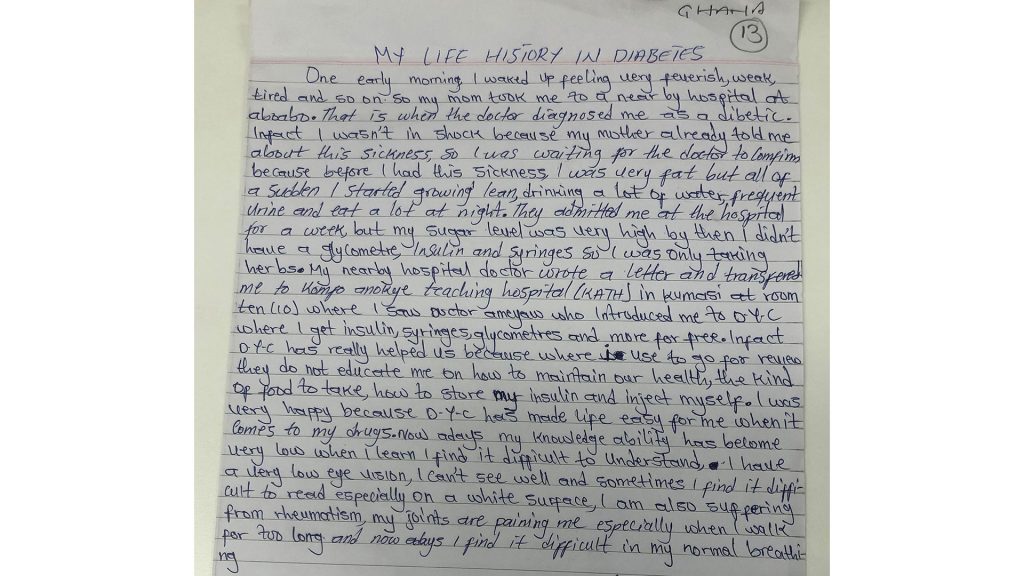 GHANA
13
MY LIFE HISTORY IN DIABETES
One early morning, I waked up feeling very feverish, weak,
tired and so on. So my mom took me to a near by hospital at
aboabo. That is when the doctor diagnosed me as a dibetic.
Infact I wasn't in shock because my mother already told me
about this sickness, so I was waiting for the doctor to comfirm
because before I had this sickness, I was very fat but all of
a sudden I started growing lean, drinking a lot of water, frequent
urine and eat a lot at night. They admitted me at the hospital
for a week, but my sugar level was very high by then I didn't
have a glycometre, Insulin and Syringes so I was only taking
herbs. My nearby hospital doctor wrote a letter and transfered
me to Komfo anokye teaching hospital (KATH) in kumasi at room
ten (10) where I saw Doctor ameyaw who introduced me to D.Y.C
where I get insulin, syringes, glycometres and more for free. Infact
D.Y.C has really helped us because where use to go for review
they do not educate me on how to maintain our health, the kind
of food to take, how to store my insulin and inject myself. I was
very happy because D-Y-C has made life easy for me when it
comes to my drugs. Now adays my knowledge ability has become
very low when I learn I find it difficult to understand. I have
a very low eye vision, I can't see well and sometimes I find it diffi-
cult to read especially on a white surface, I am also suffering
from rheumatism, my joints are paining me especially when I walk
for too long and now adays I find it difficult in my normal breathi-
ng